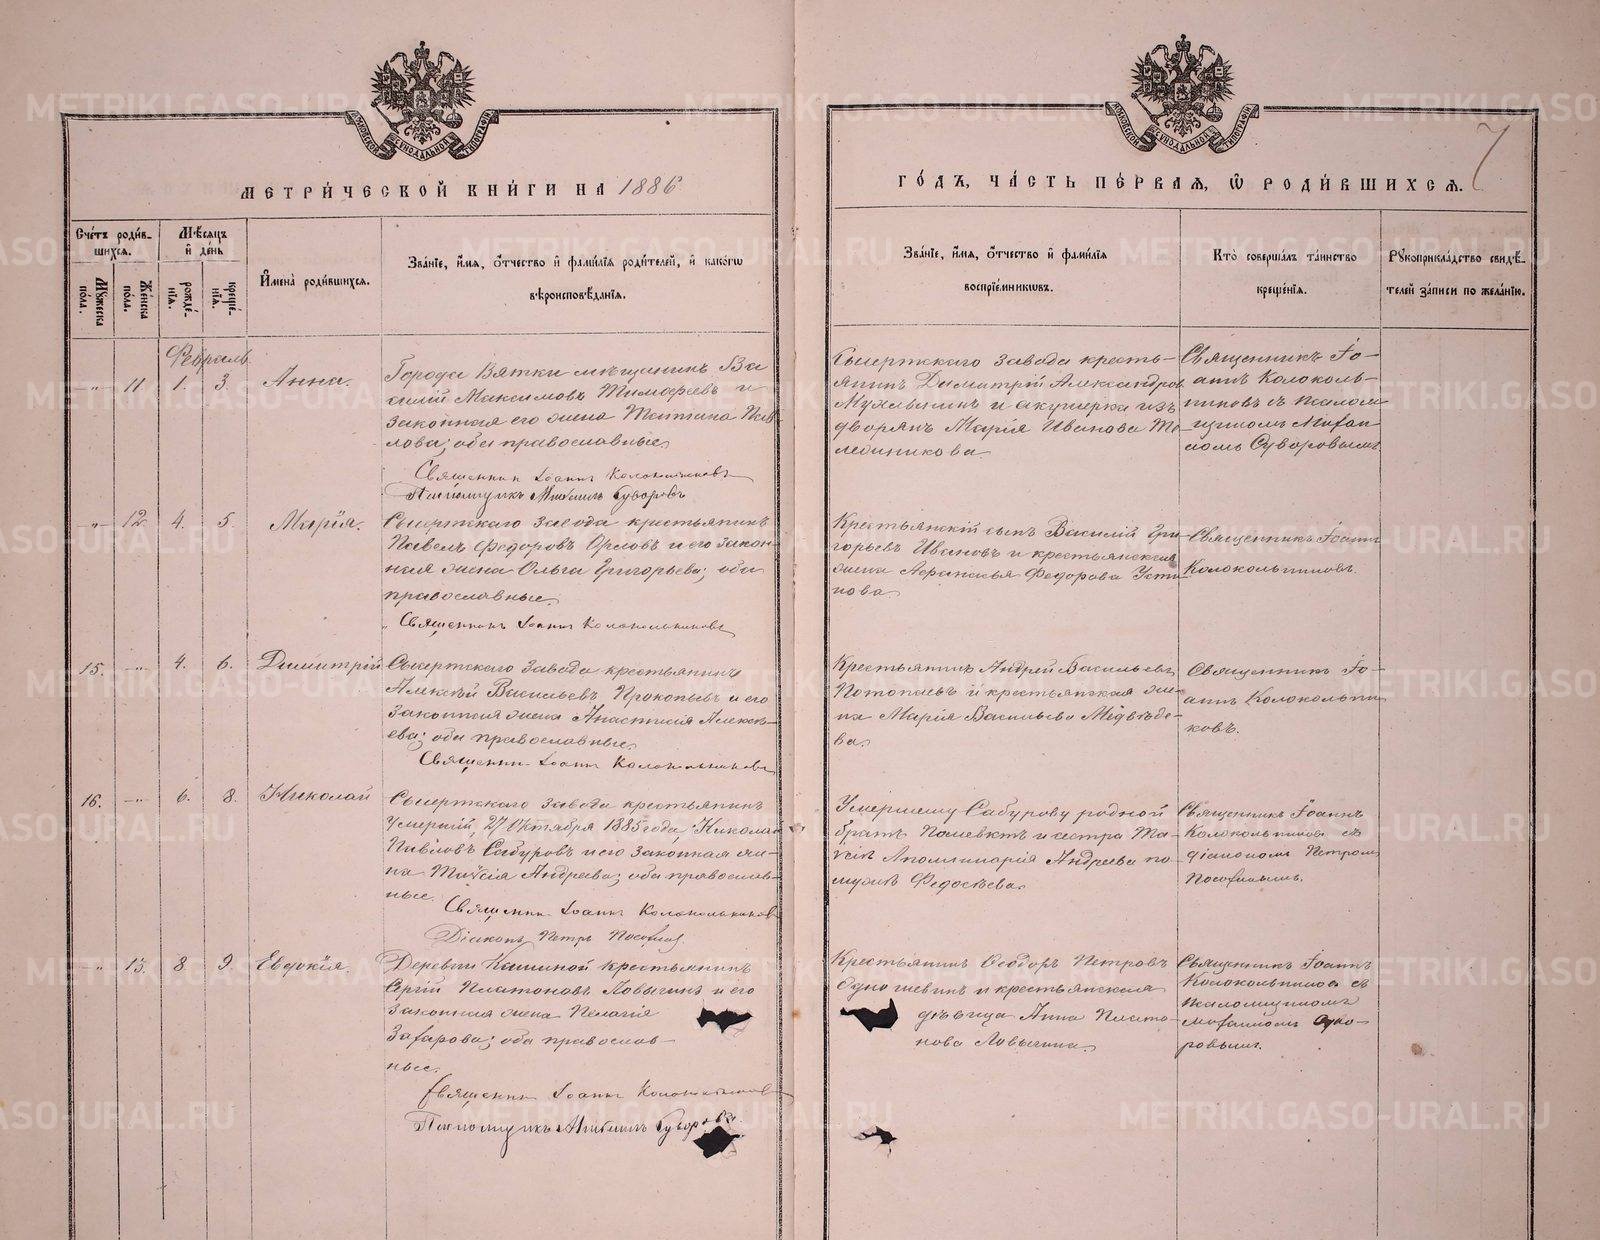 МЕТРИ́ЧЕСКОЙ КНИ́ГИ НА 1886
ГО́ДЪ, ЧА́СТЬ ПЕ́РВАЯ, Ѽ РОДИ́ВШИХСЯ.
7
Сче́тъ роди́в-
шихся.
Му́жеска по́ла.
Же́нска по́ла.
Мѣ́сяцъ
и҆ де́нь
рожде́нїя.
креще́нїя.
И҆мена̀ роди́вшихся.
Зва́нїе, и҆́мя, ѻ҆́тчество и҆ фами́лїя роди́телей, и҆ како́гѡ
вѣроисповѣ́данїя.
Зва́нїе, и҆́мя, ѻ҆́тчество и҆ фами́лїя
воспрїе́мникѡвъ.
Кто̀ соверша́лъ та́инство
креще́нїя.
Рꙋкоприкла́дство свидѣ́-
телей за́писи по жела́нїю.
Февраль
-"- 11. 1. 3. Анна.
Города Вятки мѣщанинъ Ва
силій Максимовъ Тимофеевъ и
законная его жена Татіана Пав
лова; оба православные
Священник Іоаннъ Колокольниковъ
Псаломщикъ Михаилъ Суворовъ
Сысертскаго завода кресть-
янинъ Димитрій Александров
и акушерка изъ
дворянъ Марія Иванова
Священникъ Іо-
аннъ Кокололь-
никовъ съ псалом
щикомъ Михаи
ломъ Суворовымъ
-"- 12. 4. 5. Марія.
Сысертскаго завода крестьянинъ
Павелъ Федоровъ Орловъ и его закон-
ная жена Ольга Григорьева; оба
православные.
Священникъ Іоаннъ Колокольниковъ
Крестьянскій сынъ Василій Гри
горьевъ Ивановъ и крестьянская
жена Афанасья Федорова Усти
нова
Священникъ Іоаннъ
Колокольниковъ.
15. -"- 4. 6. Димитрій
Сысертскаго завода крестьянинъ
Алексѣй Васильевъ Прокопьевъ и его
законная жена Анастасія Алексѣ-
ева; оба православные.
Священник Іоаннъ Колокольниковъ
Крестьянинъ Андрей Васильевъ
Потопаевъ и крестьянская же-
на Марія Васильева Медвѣде-
ва.
Священникъ Іо-
аннъ Колокольни
ковъ.
16. -"- 6. 8. Николай
Сысертскаго завода крестьянин
умершій 27 Октября 1885 года, Николай
Павловъ Сабуровъ и его законная же-
на Таисія Андреева; оба православ-
ные.
Священник Іоаннъ Колокольников
Діаконъ Петръ
Умершему Сабурову родной
братъ и сестра Та-
исіи Апполинарія Андреева по
мужѣ Федосѣева.
Священникъ Іоаннъ
Колокольниковъ съ
діакономъ Петромъ
-"- 13. 8 9. Евдокія.
Деревни Кашиной крестьянинъ
Сергій Платоновъ Ловыгинъ и его
законная жена Пелагія
Захарова; оба православ-
ные.
Священник Іоаннъ Колокольников
Псаломщикъ Михаилъ Суворовъ.
Крестьянинъ Ѳеодоръ Петровъ
и крестьянская
дѣвица Анна Плато-
нова Ловыгина.
Священникъ Іоаннъ
Колокольниковъ съ
псаломщикомъ
Михаиломъ Суво-
ровымъ.
METRIKI.GASO-URAL.RU